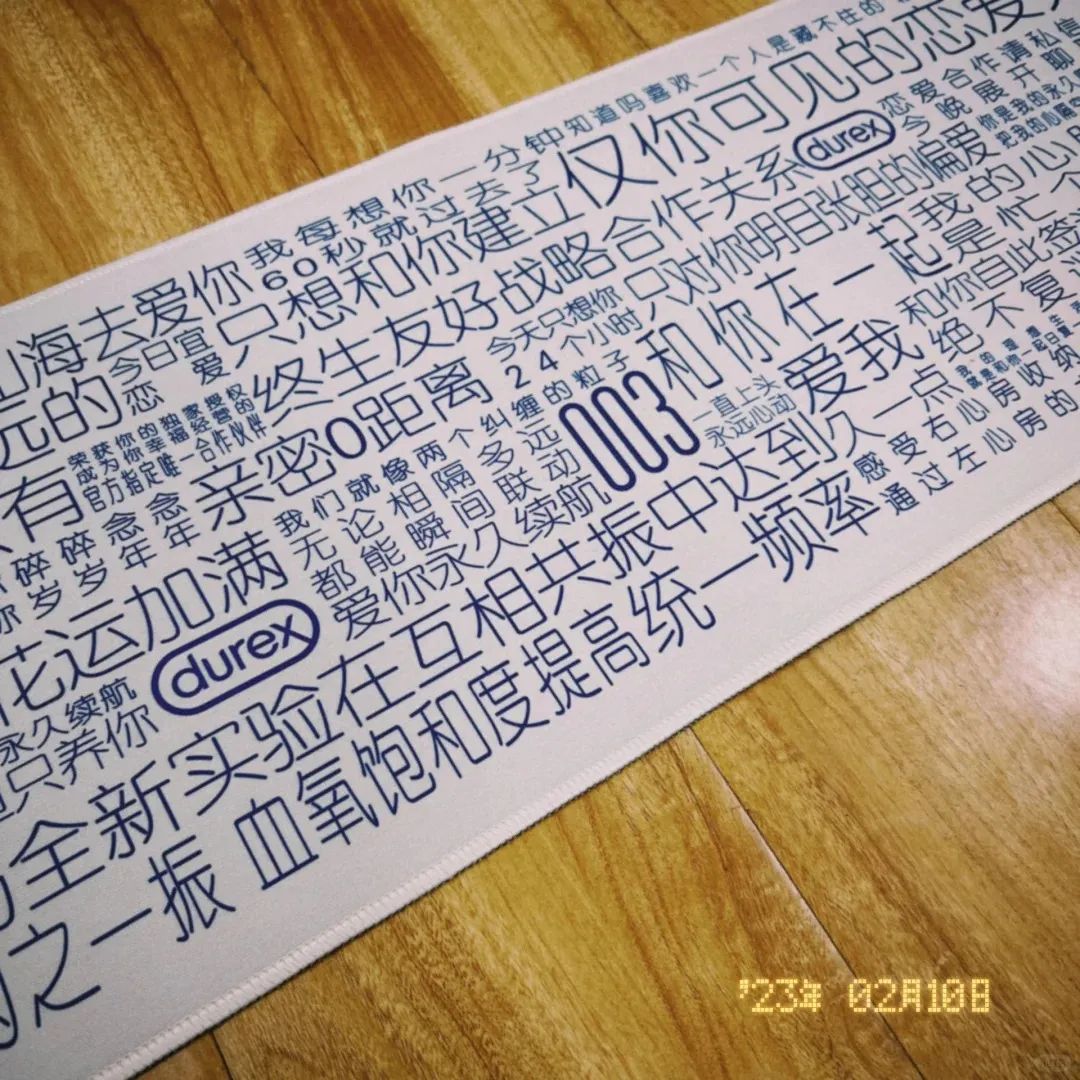 我每想你一分钟
60秒就过去了
知道吗喜欢一个人是藏不住的
仅你可见的恋爱
只想和你建立
海去爱你
今日宜
恋爱
终生友好战略合作关系
durex
恋爱合作请私信
今晚展开聊
你是我的永久
把我的心
只对你明目张胆的偏爱
今天只想你
24个小时
亲密0距离
荣获你的独家授权
成为你幸福经营的
官方指定唯一合作伙伴
和你在一起
我的心
是忙个
和你自此签
绝不复
有
碎碎念念
岁岁年年
我们就像两个纠缠的粒子
无论相隔多远
都能瞬间联动
003
一直上头
永远心动
爱我
久一点
爱你永久续航
花运加满
durex
永久续航
只养你
全新实验在互相共振中达到
之一振
血氧饱和度提高统一频率
感受右心房收纳
通过左心房的
'23年 02月10日